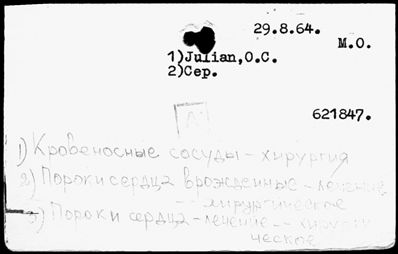 29.8.64.
М.О.
1)Julian,O.C.
2)Сер.
А
621847.
1) Кровеносные сосуды - хирургия
2) Пороки сердца врожденные - лечение
-- хирургическое
3) Пороки сердца - лечение -- хирурги
ческое